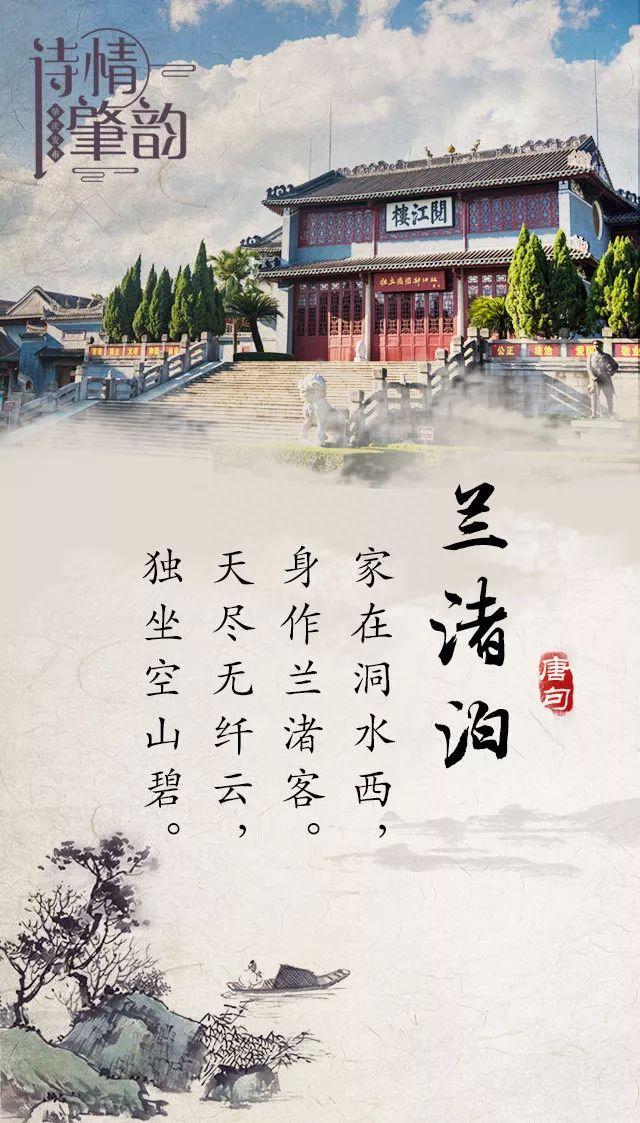 诗情
肇韵
閱江樓
公正 法治 爱国
兰渚泊
唐句
家在洞水西，
身作兰渚客。
天尽无纤云，
独坐空山碧。